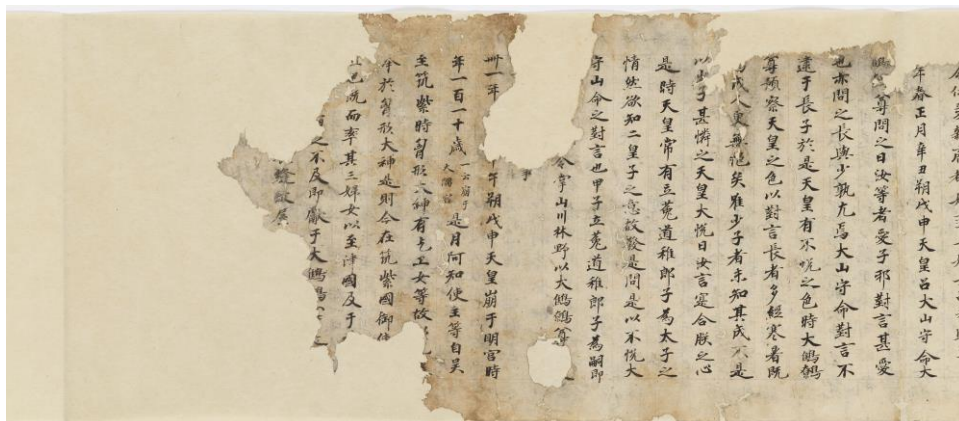 年春正月辛丑朔戊申天皇召大山守命大
尊問之曰汝等者愛子耶對言甚愛
也亦問之長與少孰尤焉大山守命對言不
逮于長子於是天皇有不悅之色時大鷦鷯
尊預察天皇之色以對言長者多經寒暑既
成人更無悒矣唯少子者未知其成不是
以少子甚憐之天皇大悅曰汝言寔合朕之心
是時天皇常有立菟道稚郎子為太子之
情然欲知二皇子之意故發是問是以不悅大
守山命之對言也甲子立菟道稚郎子為嗣即
令掌山川林野以大鷦鷯尊
事
卌一年 午朔戊申天皇崩于明宮時
年一百一十歲一云崩于大隅宮是月阿知使主等自吳
至筑紫時胷形大神有乞工女等故
今於胷形大神是則今在筑紫國御使
也既而率其三婦女以至津國及于
之不及即獻于大鷦鷯
蚊屋